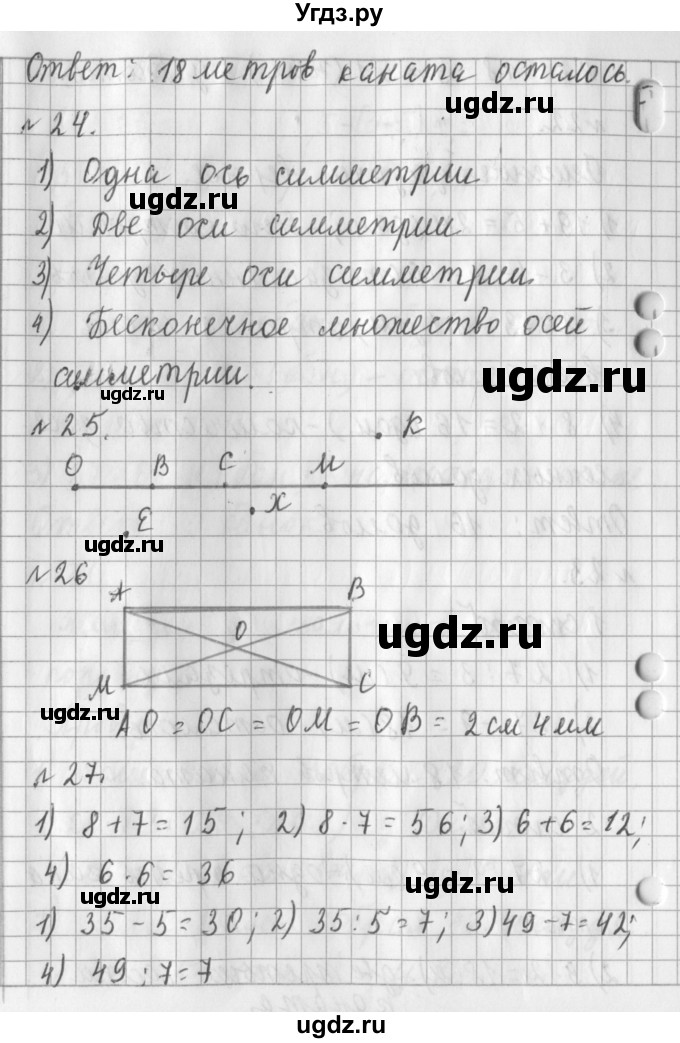 Угдз.ру
Ответ: 18 метров каната осталось.
№ 24.
1) Одна ось симметрии
2) Две оси симметрии
3) Четыре оси симметрии.
4) Бесконечное множество осей
симметрии.
№ 25.
К
О В С М
Х
Е
№ 26
А В
О
М С
АО = ОС = ОМ = ОВ = 2 см 4 мм
№ 27.
1) 8 + 7 = 15 ; 2) 8 · 7 = 56 ; 3) 6 + 6 = 12 ;
4) 6 · 6 = 36
1) 35 - 5 = 30 ; 2) 35 : 5 = 7 ; 3) 49 - 7 = 42 ;
4) 49 : 7 = 7
ugdz.ru
ugdz.ru
ugdz.ru
ugdz.ru
ugdz.ru
ugdz.ru
ugdz.ru
ugdz.ru
ugdz.ru
ugdz.ru
ugdz.ru
ugdz.ru